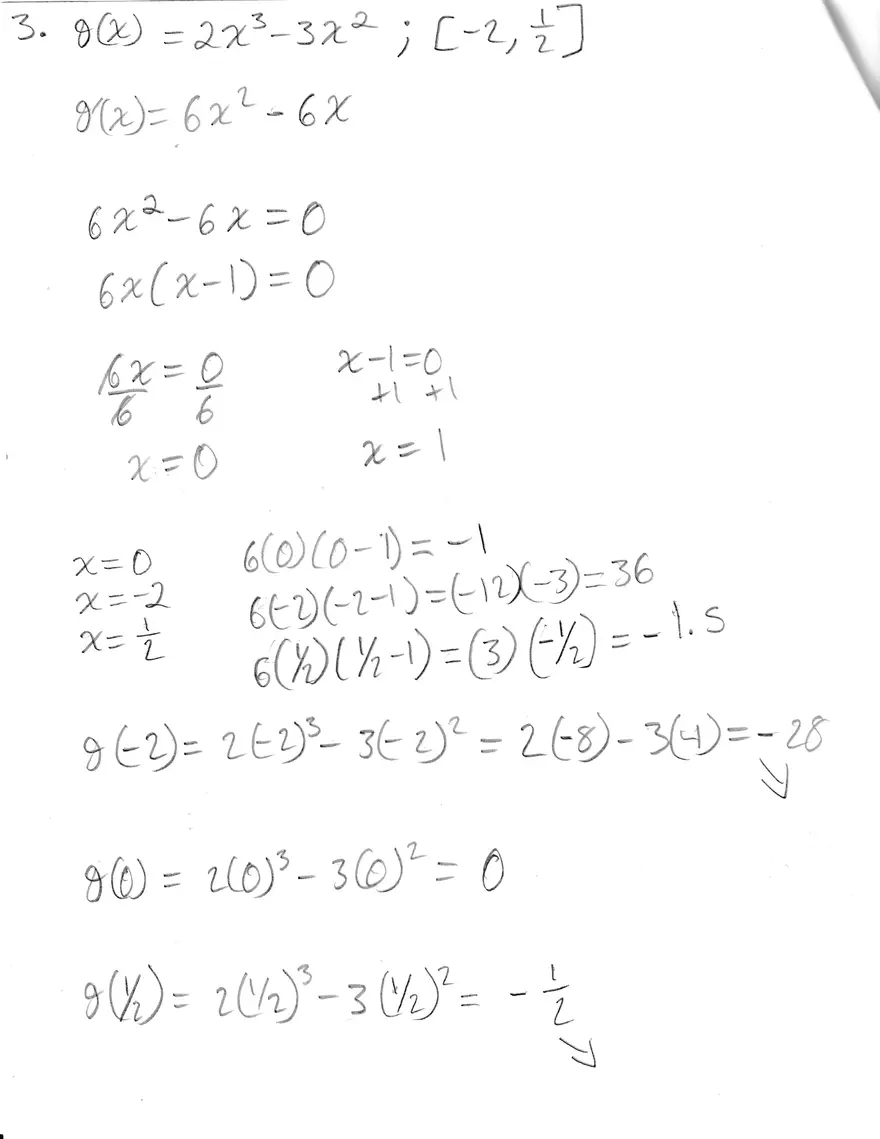 3. g(x) = 2x³-3x² ; [-2, 1/2]
g'(x)= 6x² - 6x
6x²-6x=0
6x(x-1)=0
6x/6 = 0/6    x-1=0
+1 +1
x=0    x=1
x=0    6(0)(0-1)= -1
x=-2    6(-2)(-2-1)=(-12)(-3)=36
x=1/2    6(1/2)(1/2-1)=(3)(-1/2)=-1.5
g(-2)= 2(-2)³- 3(-2)² = 2(-8)-3(4)=-28
g(0) = 2(0)³-3(0)² = 0
g(1/2)= 2(1/2)³-3(1/2)²= -1/2